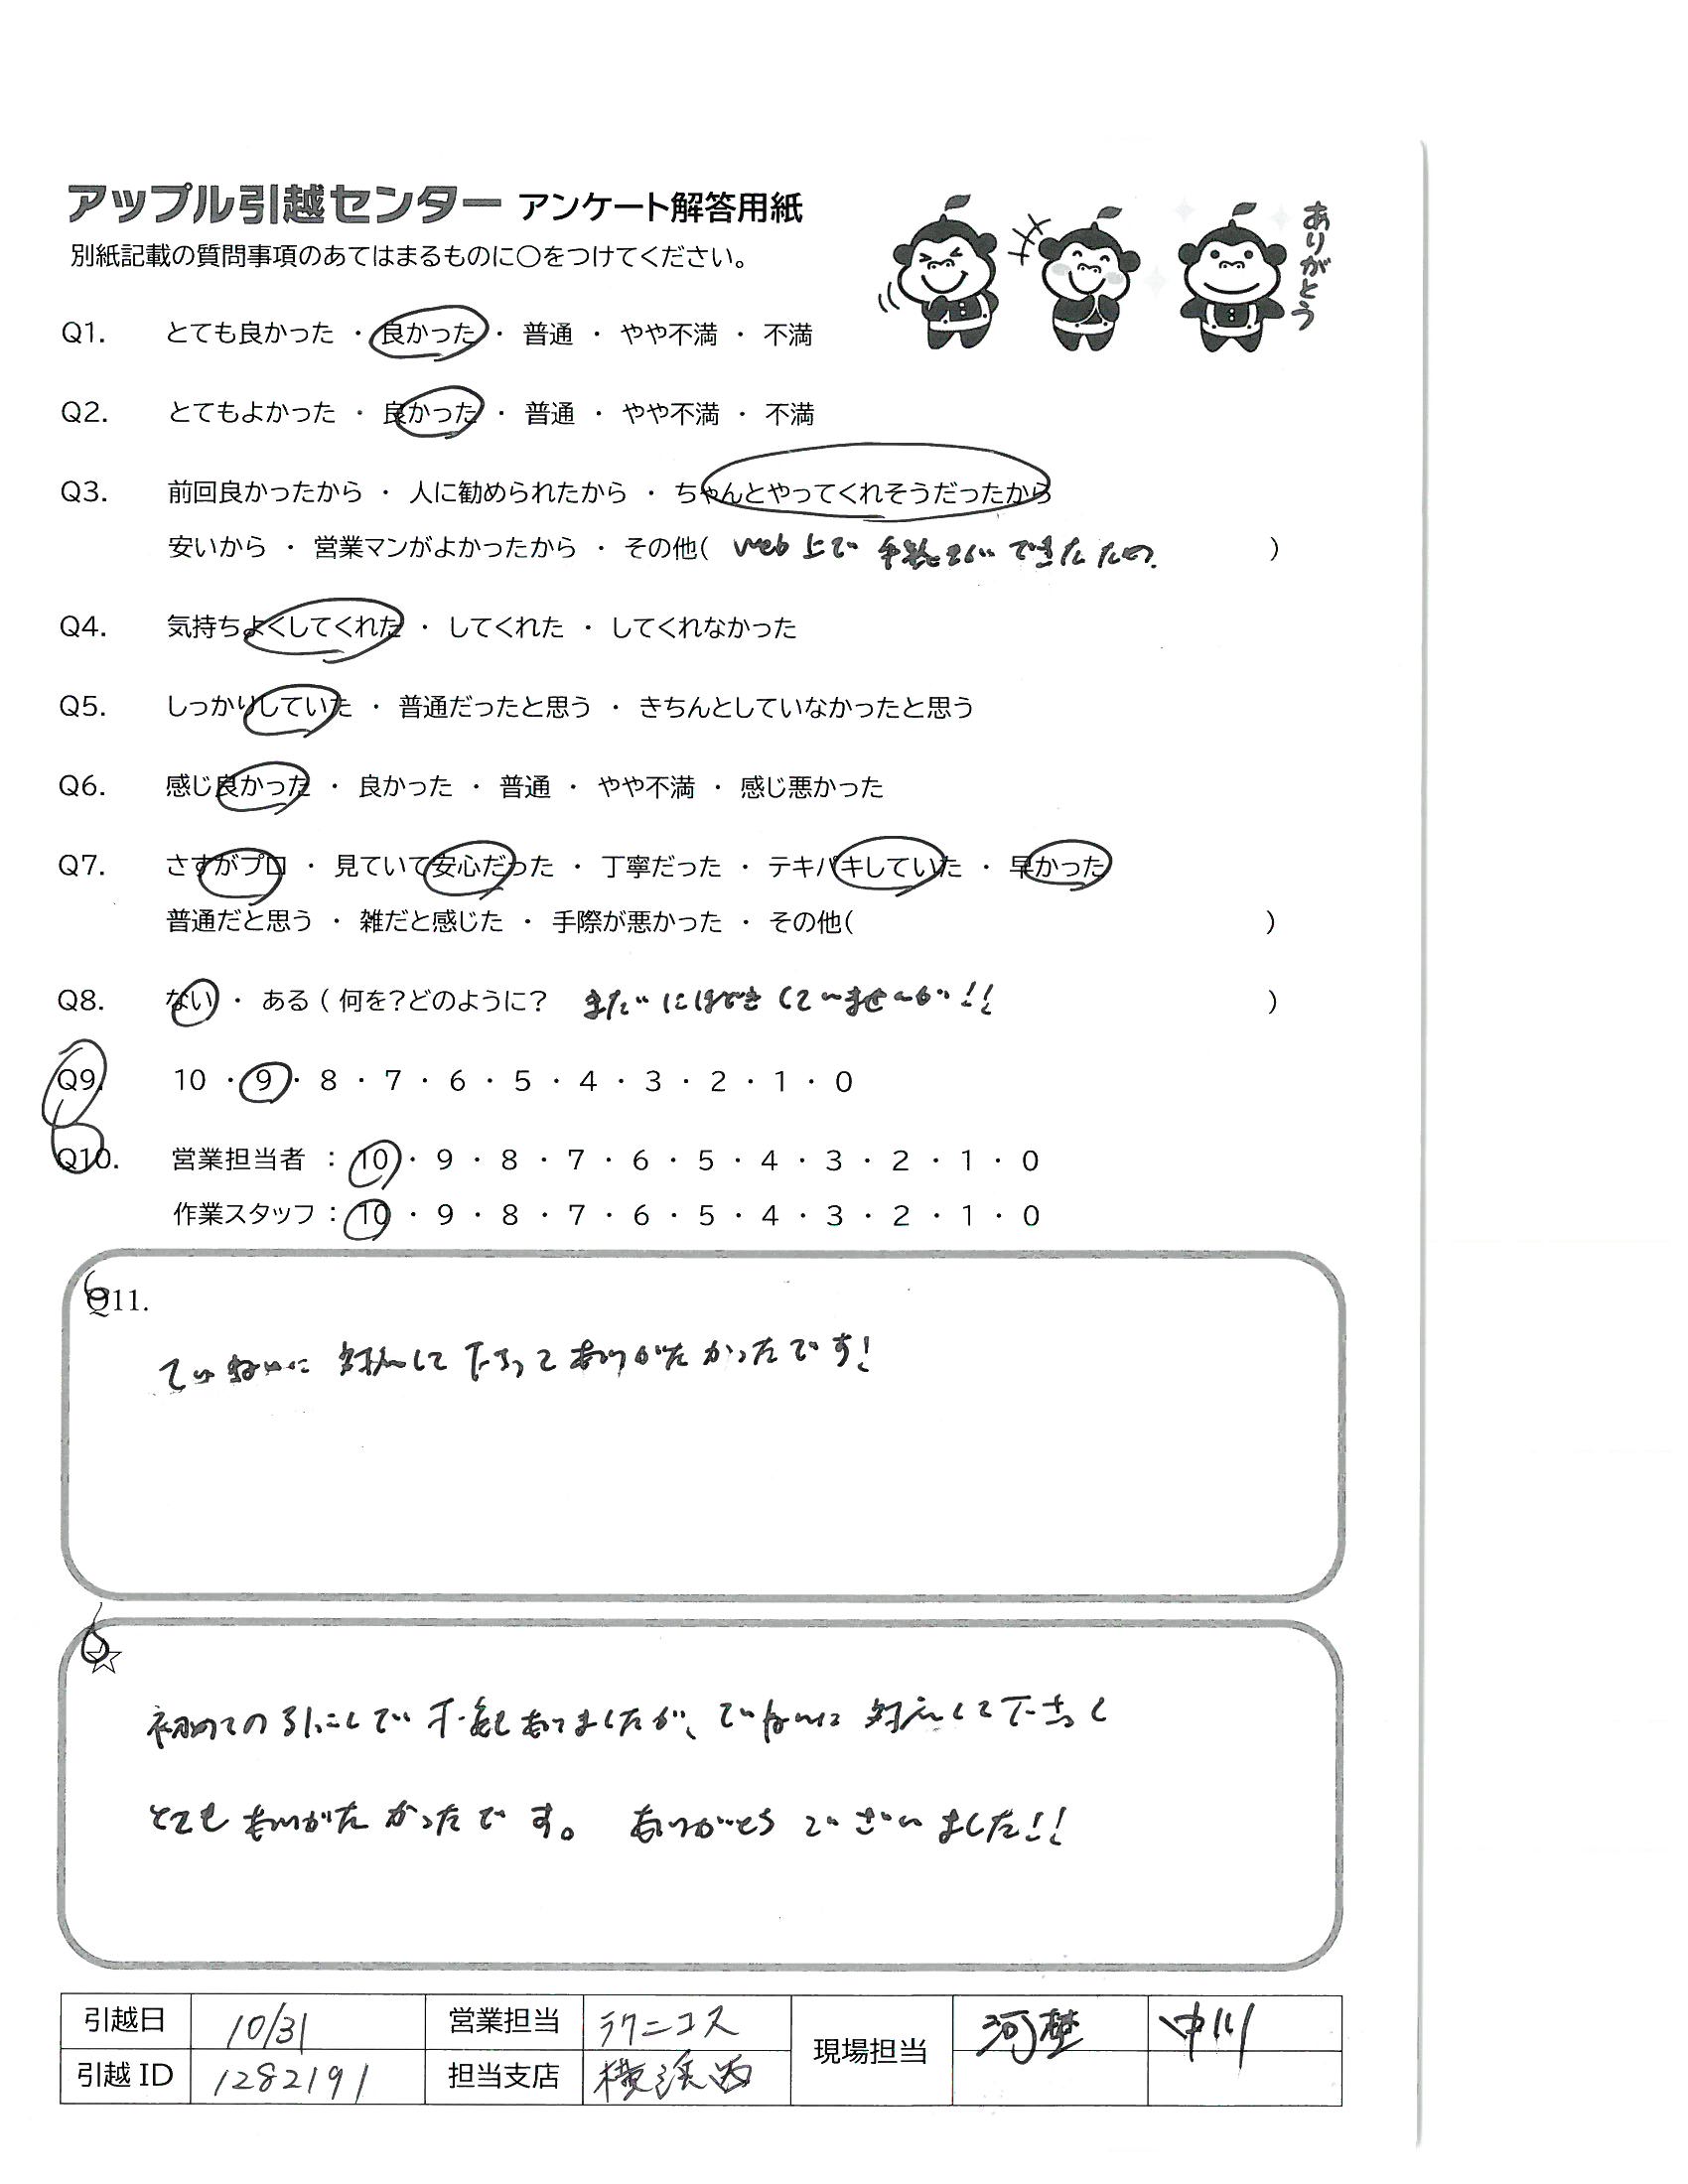 アップル引越センター アンケート解答用紙
ありがとう
別紙記載の質問事項のあてはまるものに○をつけてください。
Q1. とても良かった ・ 良かった ・ 普通 ・ やや不満 ・ 不満
Q2. とてもよかった ・ 良かった ・ 普通 ・ やや不満 ・ 不満
Q3. 前回良かったから ・ 人に勧められたから ・ ちゃんとやってくれそうだったから
安いから ・ 営業マンがよかったから ・ その他( web上で 手続きが できたため. )
Q4. 気持ちよくしてくれた ・ してくれた ・ してくれなかった
Q5. しっかりしていた ・ 普通だったと思う ・ きちんとしていなかったと思う
Q6. 感じ良かった ・ 良かった ・ 普通 ・ やや不満 ・ 感じ悪かった
Q7. さすがプロ ・ 見ていて安心だった ・ 丁寧だった ・ テキパキしていた ・ 早かった
普通だと思う ・ 雑だと感じた ・ 手際が悪かった ・ その他( )
Q8. ない ・ ある ( 何を?どのように? まだ )
Q9. 10 ・ 9 ・ 8 ・ 7 ・ 6 ・ 5 ・ 4 ・ 3 ・ 2 ・ 1 ・ 0
Q10. 営業担当者 : 10 ・ 9 ・ 8 ・ 7 ・ 6 ・ 5 ・ 4 ・ 3 ・ 2 ・ 1 ・ 0
作業スタッフ : 10 ・ 9 ・ 8 ・ 7 ・ 6 ・ 5 ・ 4 ・ 3 ・ 2 ・ 1 ・ 0
Q11.
ていねいに 対応して下さって ありがたかったです!
☆
初めての引っこしで 不安もありましたが、ていねいに 対応して下さって
とても ありがたかったです。 ありがとうございました!!
引越日 10/31 営業担当 ラクニコス 現場担当 河埜 中川
引越 ID 1282191 担当支店 横浜西